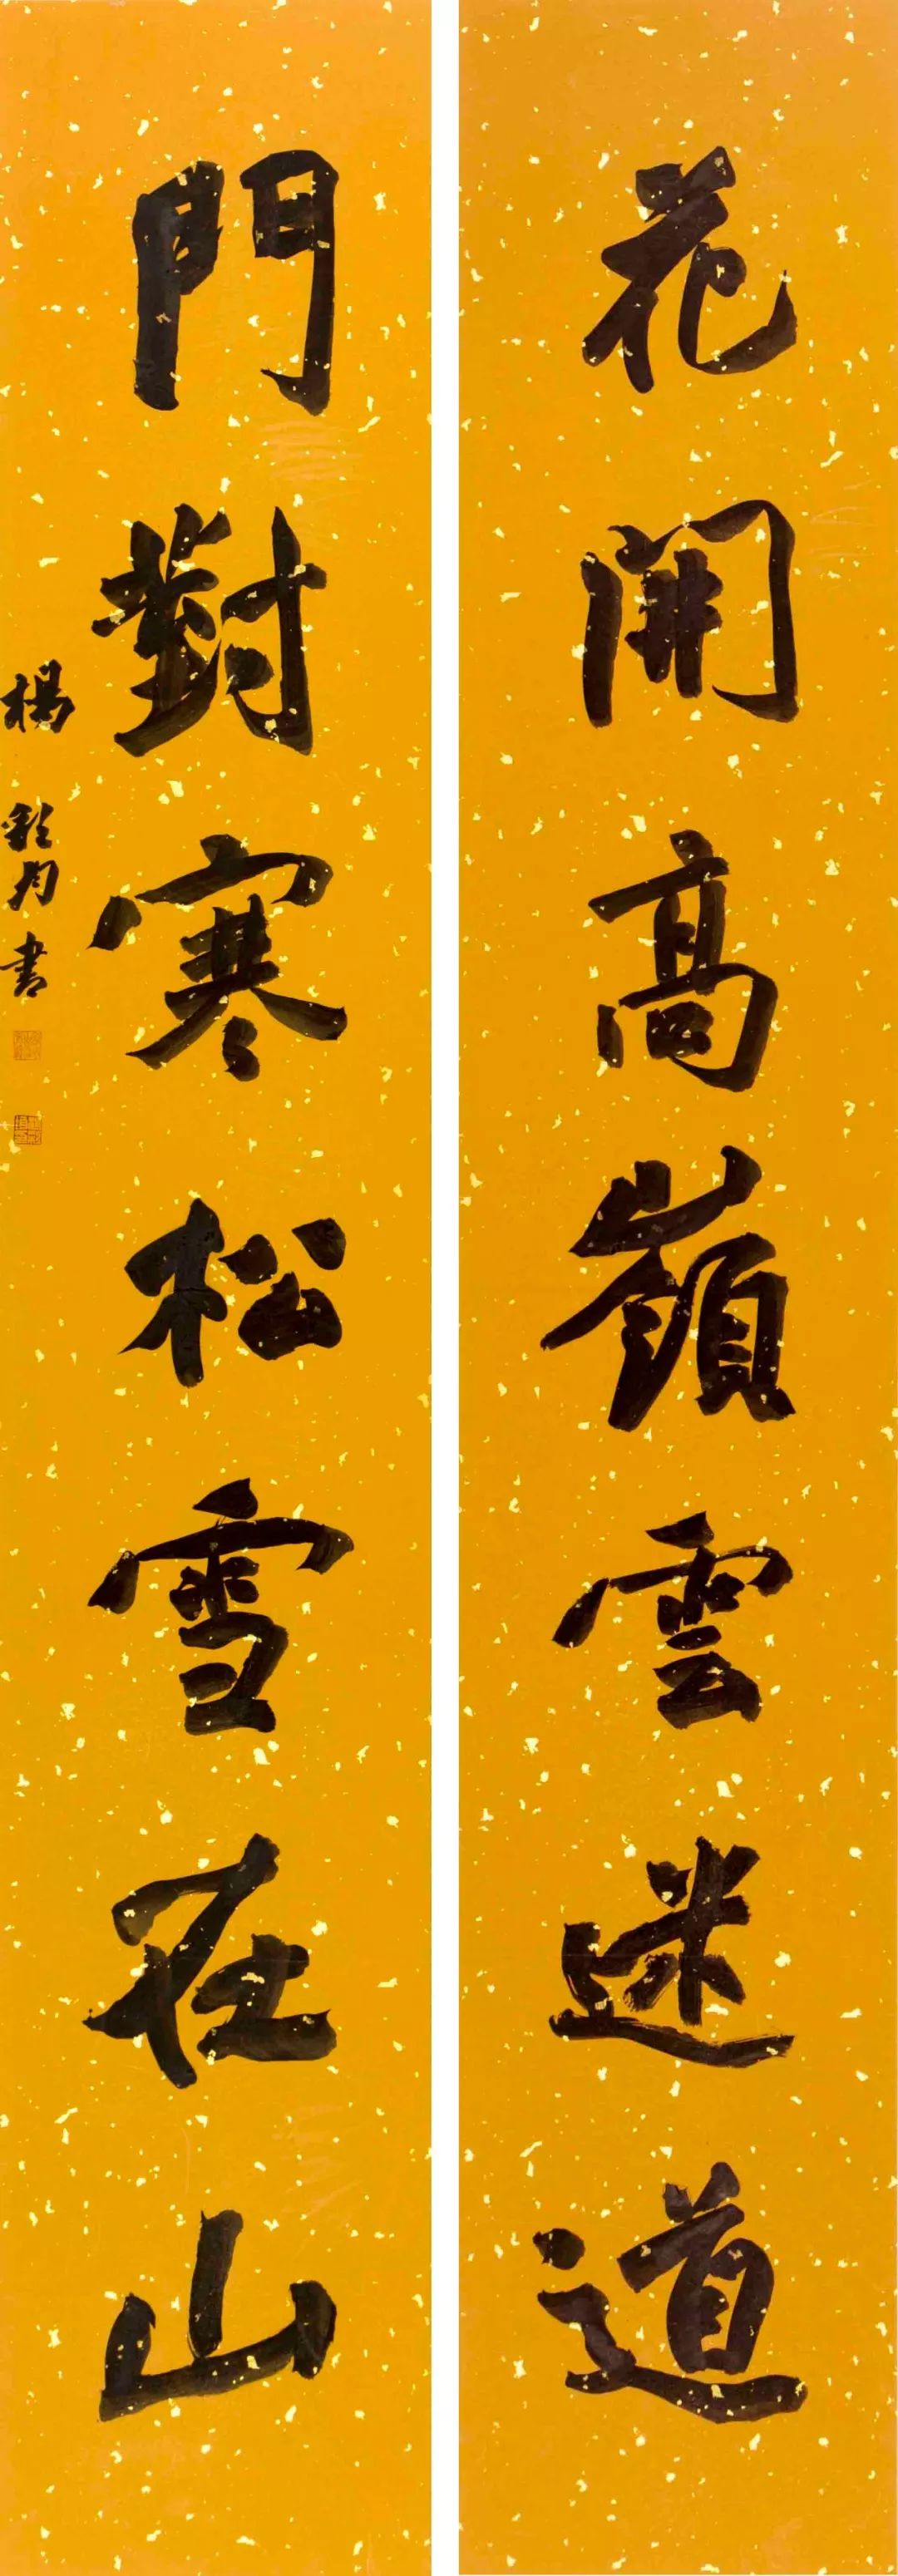 花開高嶺雲迷道
門對寒松雪在山
楊彩月書